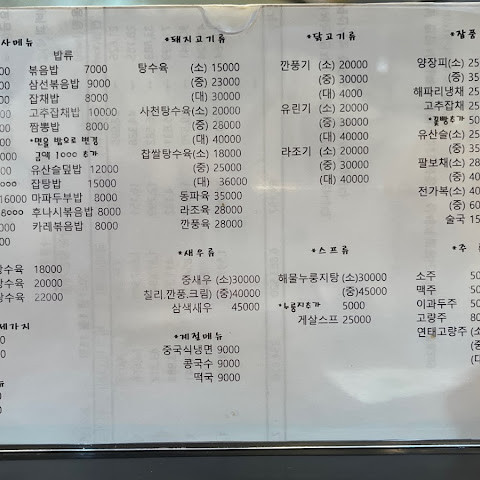 사메뉴
밥류
볶음밥 7000
삼선볶음밥 9000
잡채밥 8000
고추잡채밥 10000
짬뽕밥 8000
*면을 밥으로 변경
금액 1000 추가
유산슬덮밥 12000
잡탕밥 15000
16000 마파두부밥 8000
후나시볶음밥 8000
카레볶음밥 8000
탕수육 18000
탕수육 20000
탕수육 22000
세가지
*돼지고기류
탕수육 (소) 15000
(중) 23000
(대) 30000
사천탕수육 (소) 20000
(중) 28000
(대) 40000
찹쌀탕수육 (소) 18000
(중) 25000
(대) 36000
동파육 35000
라조육 28000
깐풍육 28000
*새우류
중새우 (소)30000
칠리.깐풍.크림) (중)40000
삼색새우 45000
*계절메뉴
중국식냉면 9000
콩국수 9000
떡국 9000
*닭고기류
깐풍기 (소) 20000
(중) 30000
(대) 4000
유린기 (소) 20000
(중) 30000
(대) 40000
라조기 (소) 20000
(중) 30000
(대) 40000
*스프류
해물누룽지탕 (소)30000
(중)45000
*누룽지추가 5000
게살스프 25000
*잡품
양장피(소) 25
(중) 30
해파리냉채 25
고추잡채 25
*꽃빵추가 50
유산슬(소) 25
(중) 35
팔보채(소) 28
(중) 40
전가복(소) 40
(중) 60
술국 15
*주
소주 50
맥주 50
이과두주 50
고량주 80
연태고량주 (소
(중
(대